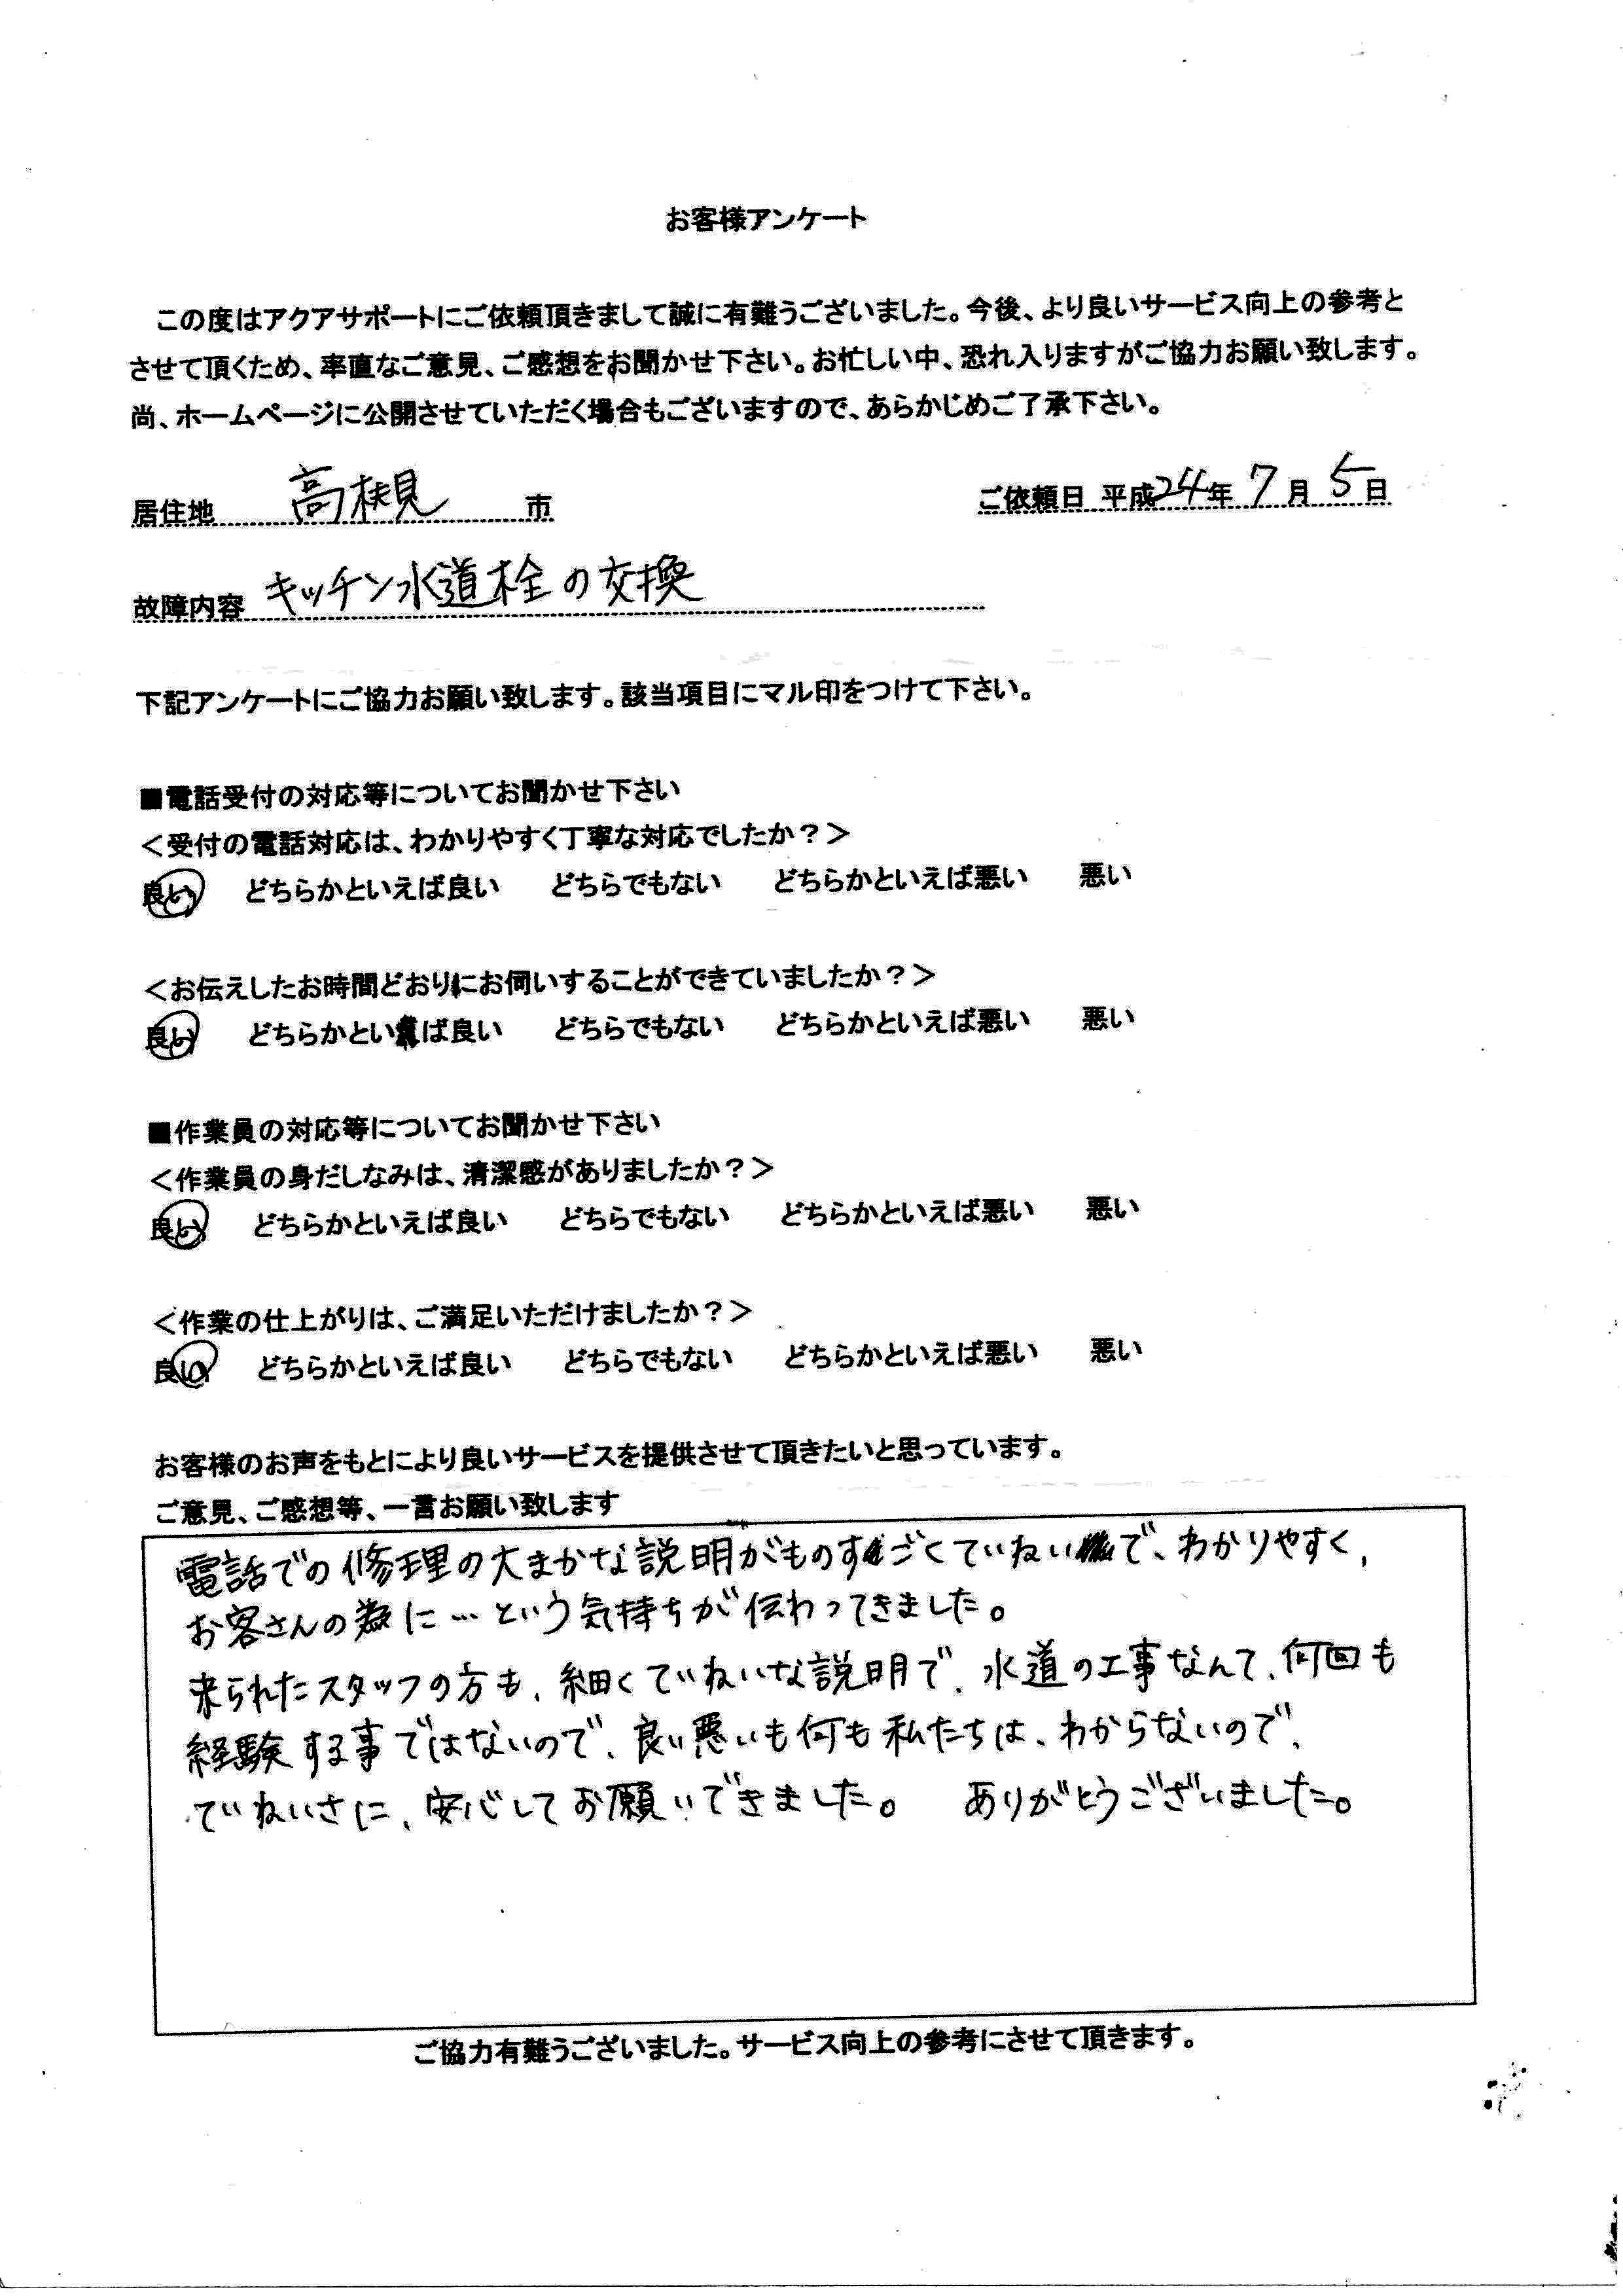 お客様アンケート
この度はアクアサポートにご依頼頂きまして誠に有難うございました。今後、より良いサービス向上の参考と
させて頂くため、率直なご意見、ご感想をお聞かせ下さい。お忙しい中、恐れ入りますがご協力お願い致します。
尚、ホームページに公開させていただく場合もございますので、あらかじめご了承下さい。
居住地 高槻 市 ご依頼日 平成24年7月5日
故障内容 キッチン水道栓の交換
下記アンケートにご協力お願い致します。該当項目にマル印をつけて下さい。
■電話受付の対応等についてお聞かせ下さい
＜受付の電話対応は、わかりやすく丁寧な対応でしたか？＞
良い どちらかといえば良い どちらでもない どちらかといえば悪い 悪い
＜お伝えしたお時間どおりにお伺いすることができていましたか？＞
良い どちらかといえば良い どちらでもない どちらかといえば悪い 悪い
■作業員の対応等についてお聞かせ下さい
＜作業員の身だしなみは、清潔感がありましたか？＞
良い どちらかといえば良い どちらでもない どちらかといえば悪い 悪い
＜作業の仕上がりは、ご満足いただけましたか？＞
良い どちらかといえば良い どちらでもない どちらかといえば悪い 悪い
お客様のお声をもとにより良いサービスを提供させて頂きたいと思っています。
ご意見、ご感想等、一言お願い致します
電話での修理の大まかな説明がものすごくていねいで、わかりやすく、
お客さんの為に…という気持ちが伝わってきました。
来られたスタッフの方も、細くていねいな説明で、水道の工事なんて、何回も
経験する事ではないので、良い悪いも何も私たちは、わからないので、
ていねいさに、安心してお願いできました。 ありがとうございました。
ご協力有難うございました。サービス向上の参考にさせて頂きます。